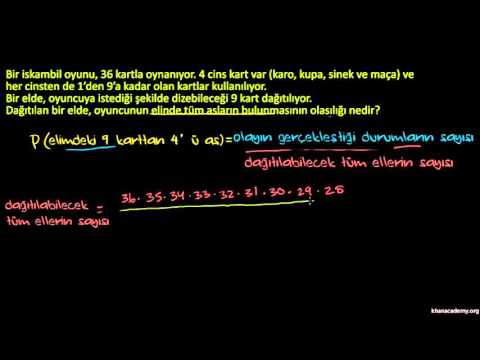 Bir iskambil oyunu, 36 kartla oynanıyor. 4 cins kart var (karo, kupa, sinek ve maça) ve
her cinsten de 1'den 9'a kadar olan kartlar kullanılıyor.
Bir elde, oyuncuya istediği şekilde dizebileceği 9 kart dağıtılıyor.
Dağıtılan bir elde, oyuncunun elinde tüm asların bulunmasının olasılığı nedir?
P (elimdeki 9 karttan 4' ü as) = olayın gerçekleştiği durumların sayısı
dağıtılabilecek tüm ellerin sayısı
dağıtılabilecek tüm ellerin sayısı = 36 · 35 · 34 · 33 · 32 · 31 · 30 · 29 · 28
khanacademy.org